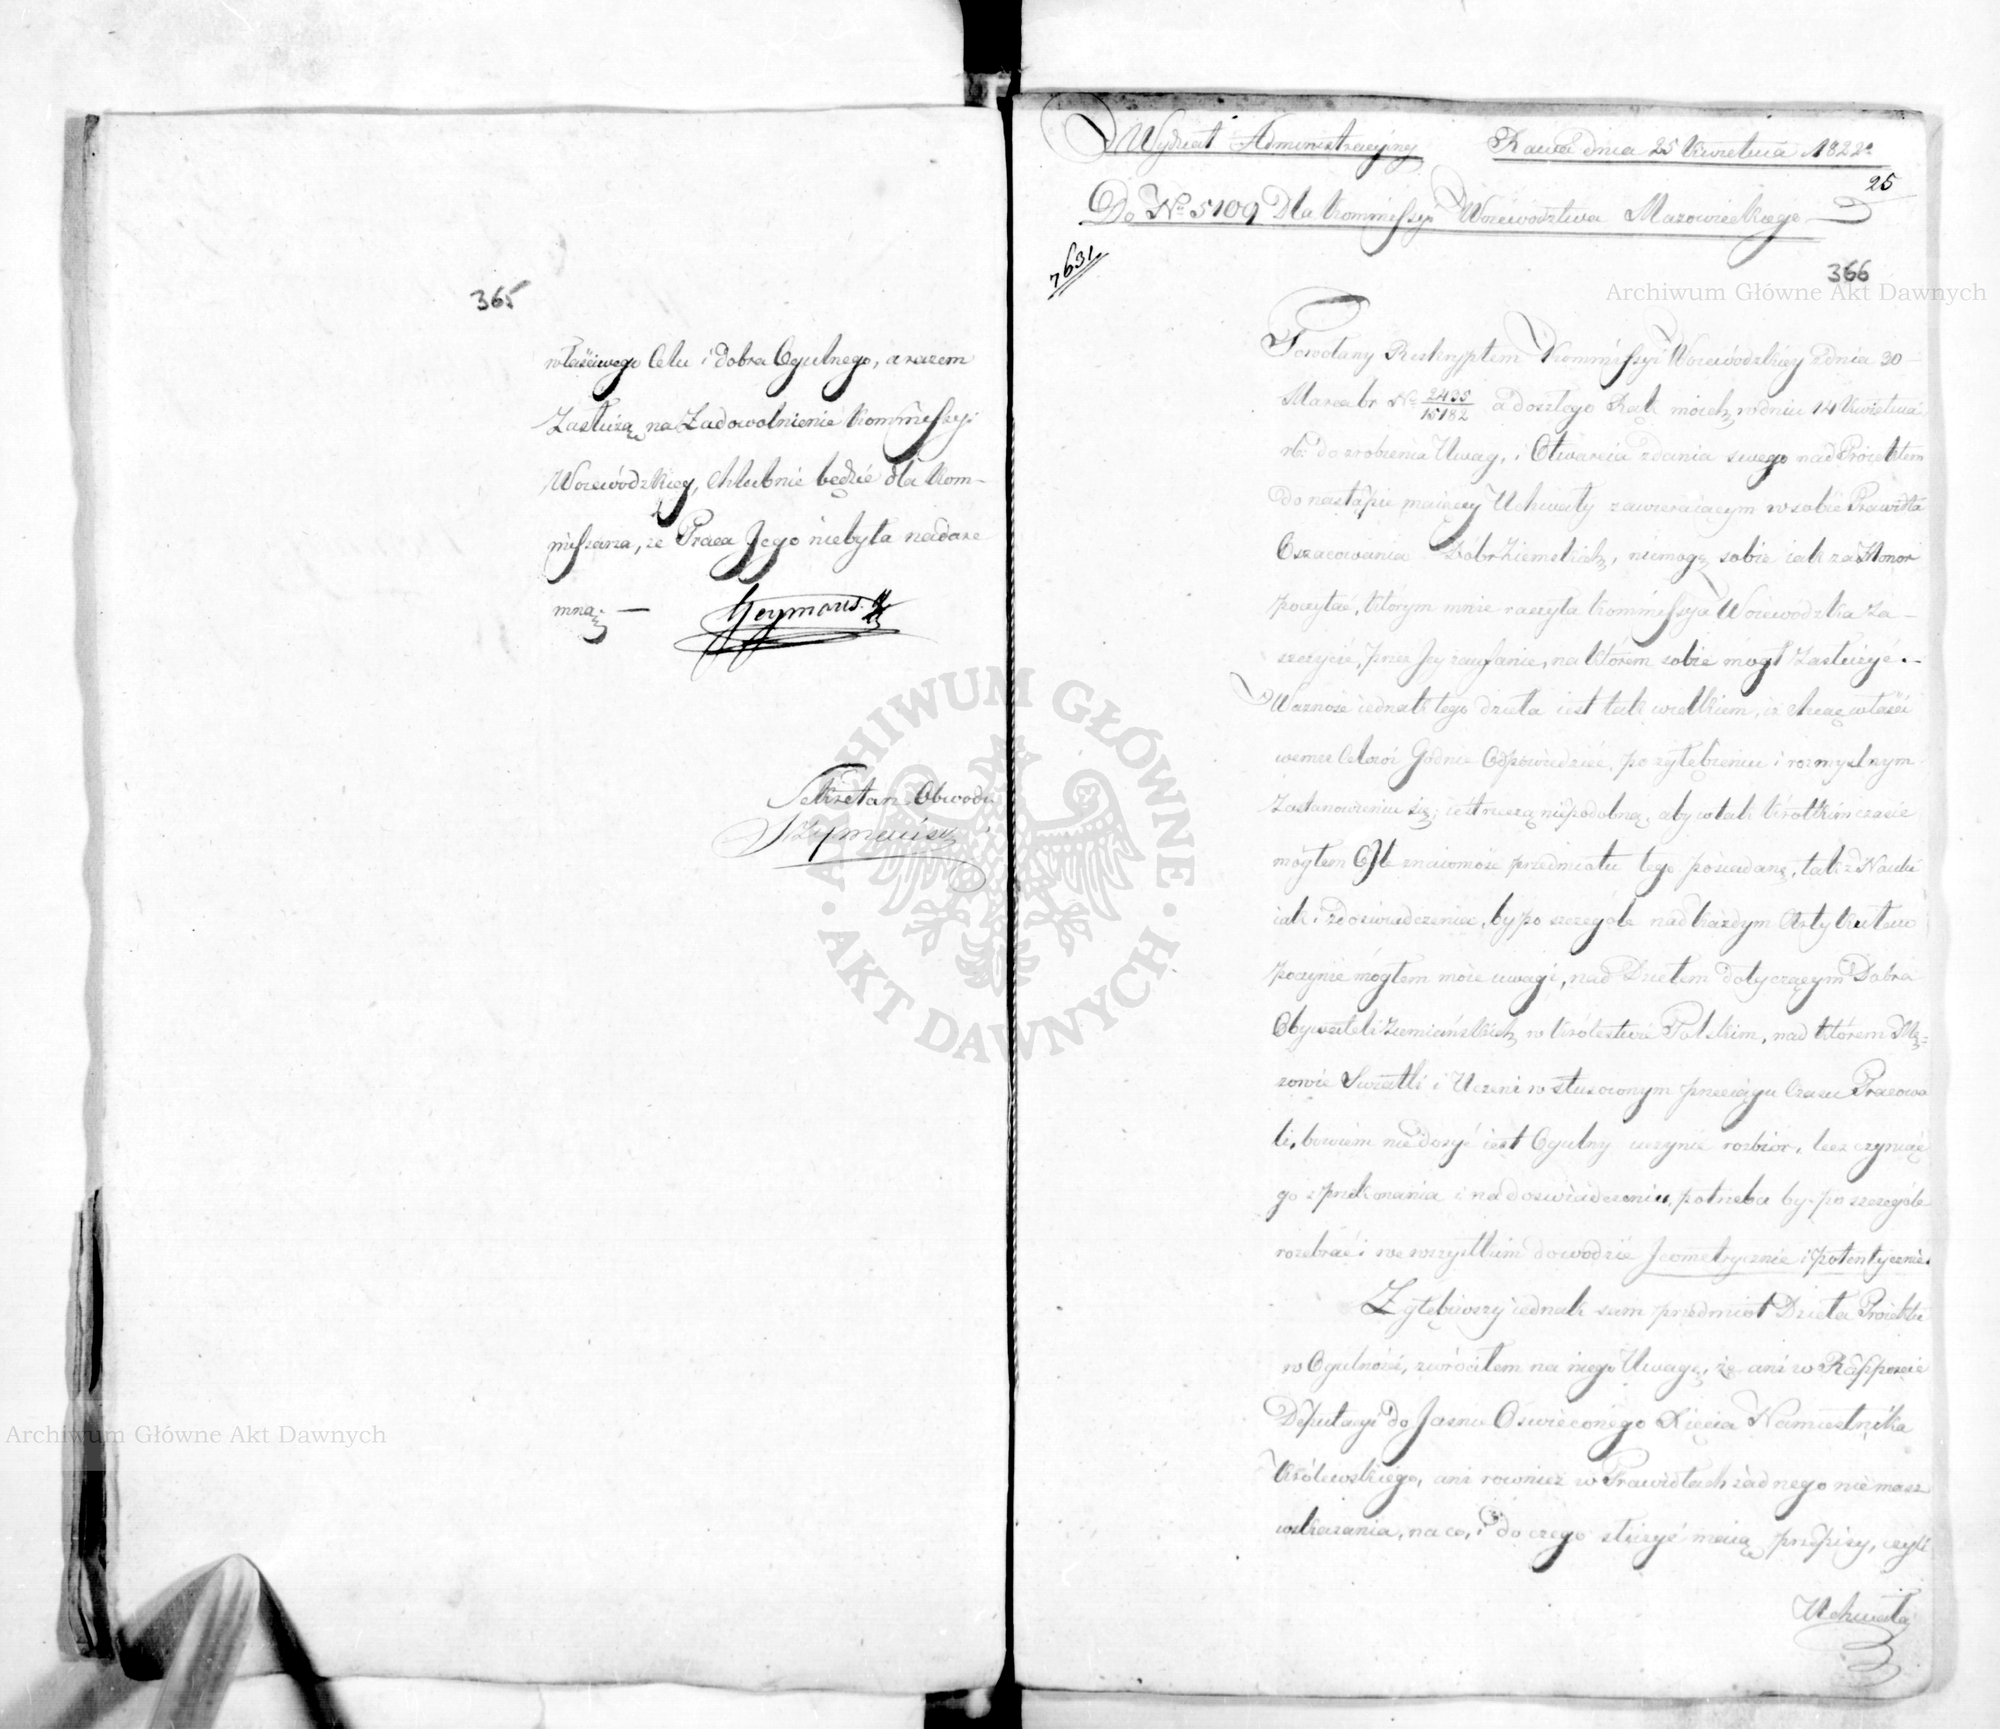 365
właściwego Celu i dobra Ogulnego, a razem
Zasłużą na Zadowolnienie Kommissyi
Woiewódzkiey, Chlubnie będzie dla Kom-
missarza, że Praca Jego niebyła nadare
mną. —
Sekretarz Obwodu
Wydział Administracyiny
Rawa dnia 25 Kwietnia 1822 r.
25
Do No 5109 Dla Kommissyi Woiewództwa Mazowieckiego
7631
366
Powołany Reskryptem Kommissyi Woiewódzkiey z dnia 30
Marca br No 2435/15182 a doszłego Rąk moich w dniu 14 Kwietnia
rb: do zrobienia Uwag, i Otwarcia zdania swego nad Proiektem
do nastąpić maiącey Uchwały zawieraiącym w sobie Prawidła
Oszacowania Dóbr Ziemskich, niemogę sobie iak za Honor
poczytać, którym mnie raczyła Kommissya Woiewódzka Za-
szczycić, przez Jey zaufanie, na którem sobie mógł Zasłużyć. -
Ważność iednak tego dzieła iest tak wielkiem, iż chcąc właści
wemu Celowi Godnie Odpowiedzieć, po zgłębieniu i rozmyslnym
Zastanowieniu się; iest rzeczą niepodobną, aby w tak krótkim czasie
mógłem Ile znaiomość przedmiotu tego posiadam, tak z Nauki
iak i z doswiadczenia, by po szczególe nad każdym Artykułem
poczynić mógłem moie uwagi, nad Dziełem dotyczącym Dobra
Obywateli Ziemiańskich w Królestwie Polskim, nad którem Mę=
żowie Swiatli i Uczeni w stosownym przeciągu Czasu Pracowa
li, bowiem nie dosyć iest Ogulny uczynić rozbiór, lecz czyniąc
go z przekonania i na doswiadczeniu, potrzeba by po szczególe
rozebrać i we wszystkim dowodzić Jeometrycznie i
Zgłębiwszy iednak sam przedmiot Dzieła Proiektu
w Ogulności, zwróciłem na niego Uwagę, że ani w Rapporcie
Deputacyi do Jaśnie Oświeconego Xięcia Namiestnika
Królewskiego, ani rownież w Prawidłach żadnego nie masz
wskazania, na co, i do czego służyć maią przepisy, czyli
Uchwała